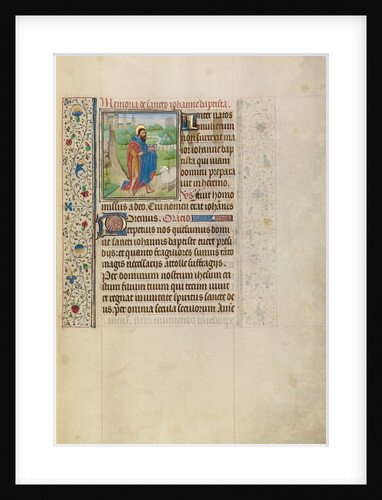 Memoria de sancto iohanne baptista.
Inter natos
mulierum
non surrexit ma
ior iohanne bap
tista qui viam
domini prepara
uit in heremo.
fuit homo
missus a deo. Cui nomen erat iohannes
Oremus. Oracio
Perpetuis nos quesumus domi
ne sancti iohannis baptiste tuere presi
dijs: et quanto fragiliores sumus tãto
magis necessarijs attolle suffragijs.
Per dominum nostrum ihesum cri
stum filium tuum qui tecum viuit
et regnat in unitate spiritus sancti de
us. Per omnia secula seculorum Amẽ